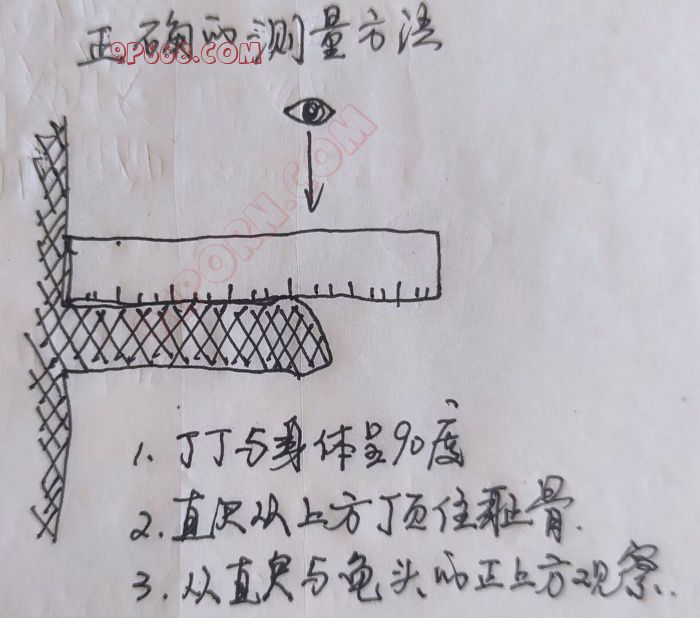 正确的测量方法
9P668.COM
91PORN.COM
1. 丁丁与身体呈90度
2. 直尺从上方顶住耻骨.
3. 从直尺与龟头的正上方观察.